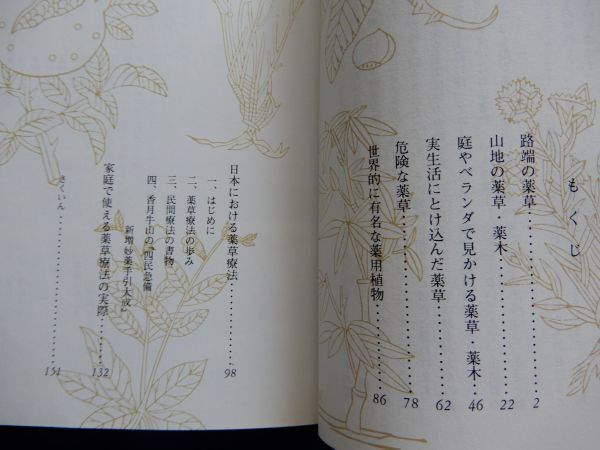 もくじ
路端の薬草……………2
山地の薬草・薬木……………22
庭やベランダで見かける薬草・薬木……………46
実生活にとけ込んだ薬草……………62
危険な薬草……………78
世界的に有名な薬用植物……………86
日本における薬草療法……………98
一、はじめに
二、薬草療法の歩み
三、民間療法の書物
四、香月牛山の“四民急備
新増妙薬手引大成”
家庭で使える薬草療法の実際……………132
さくいん……………151